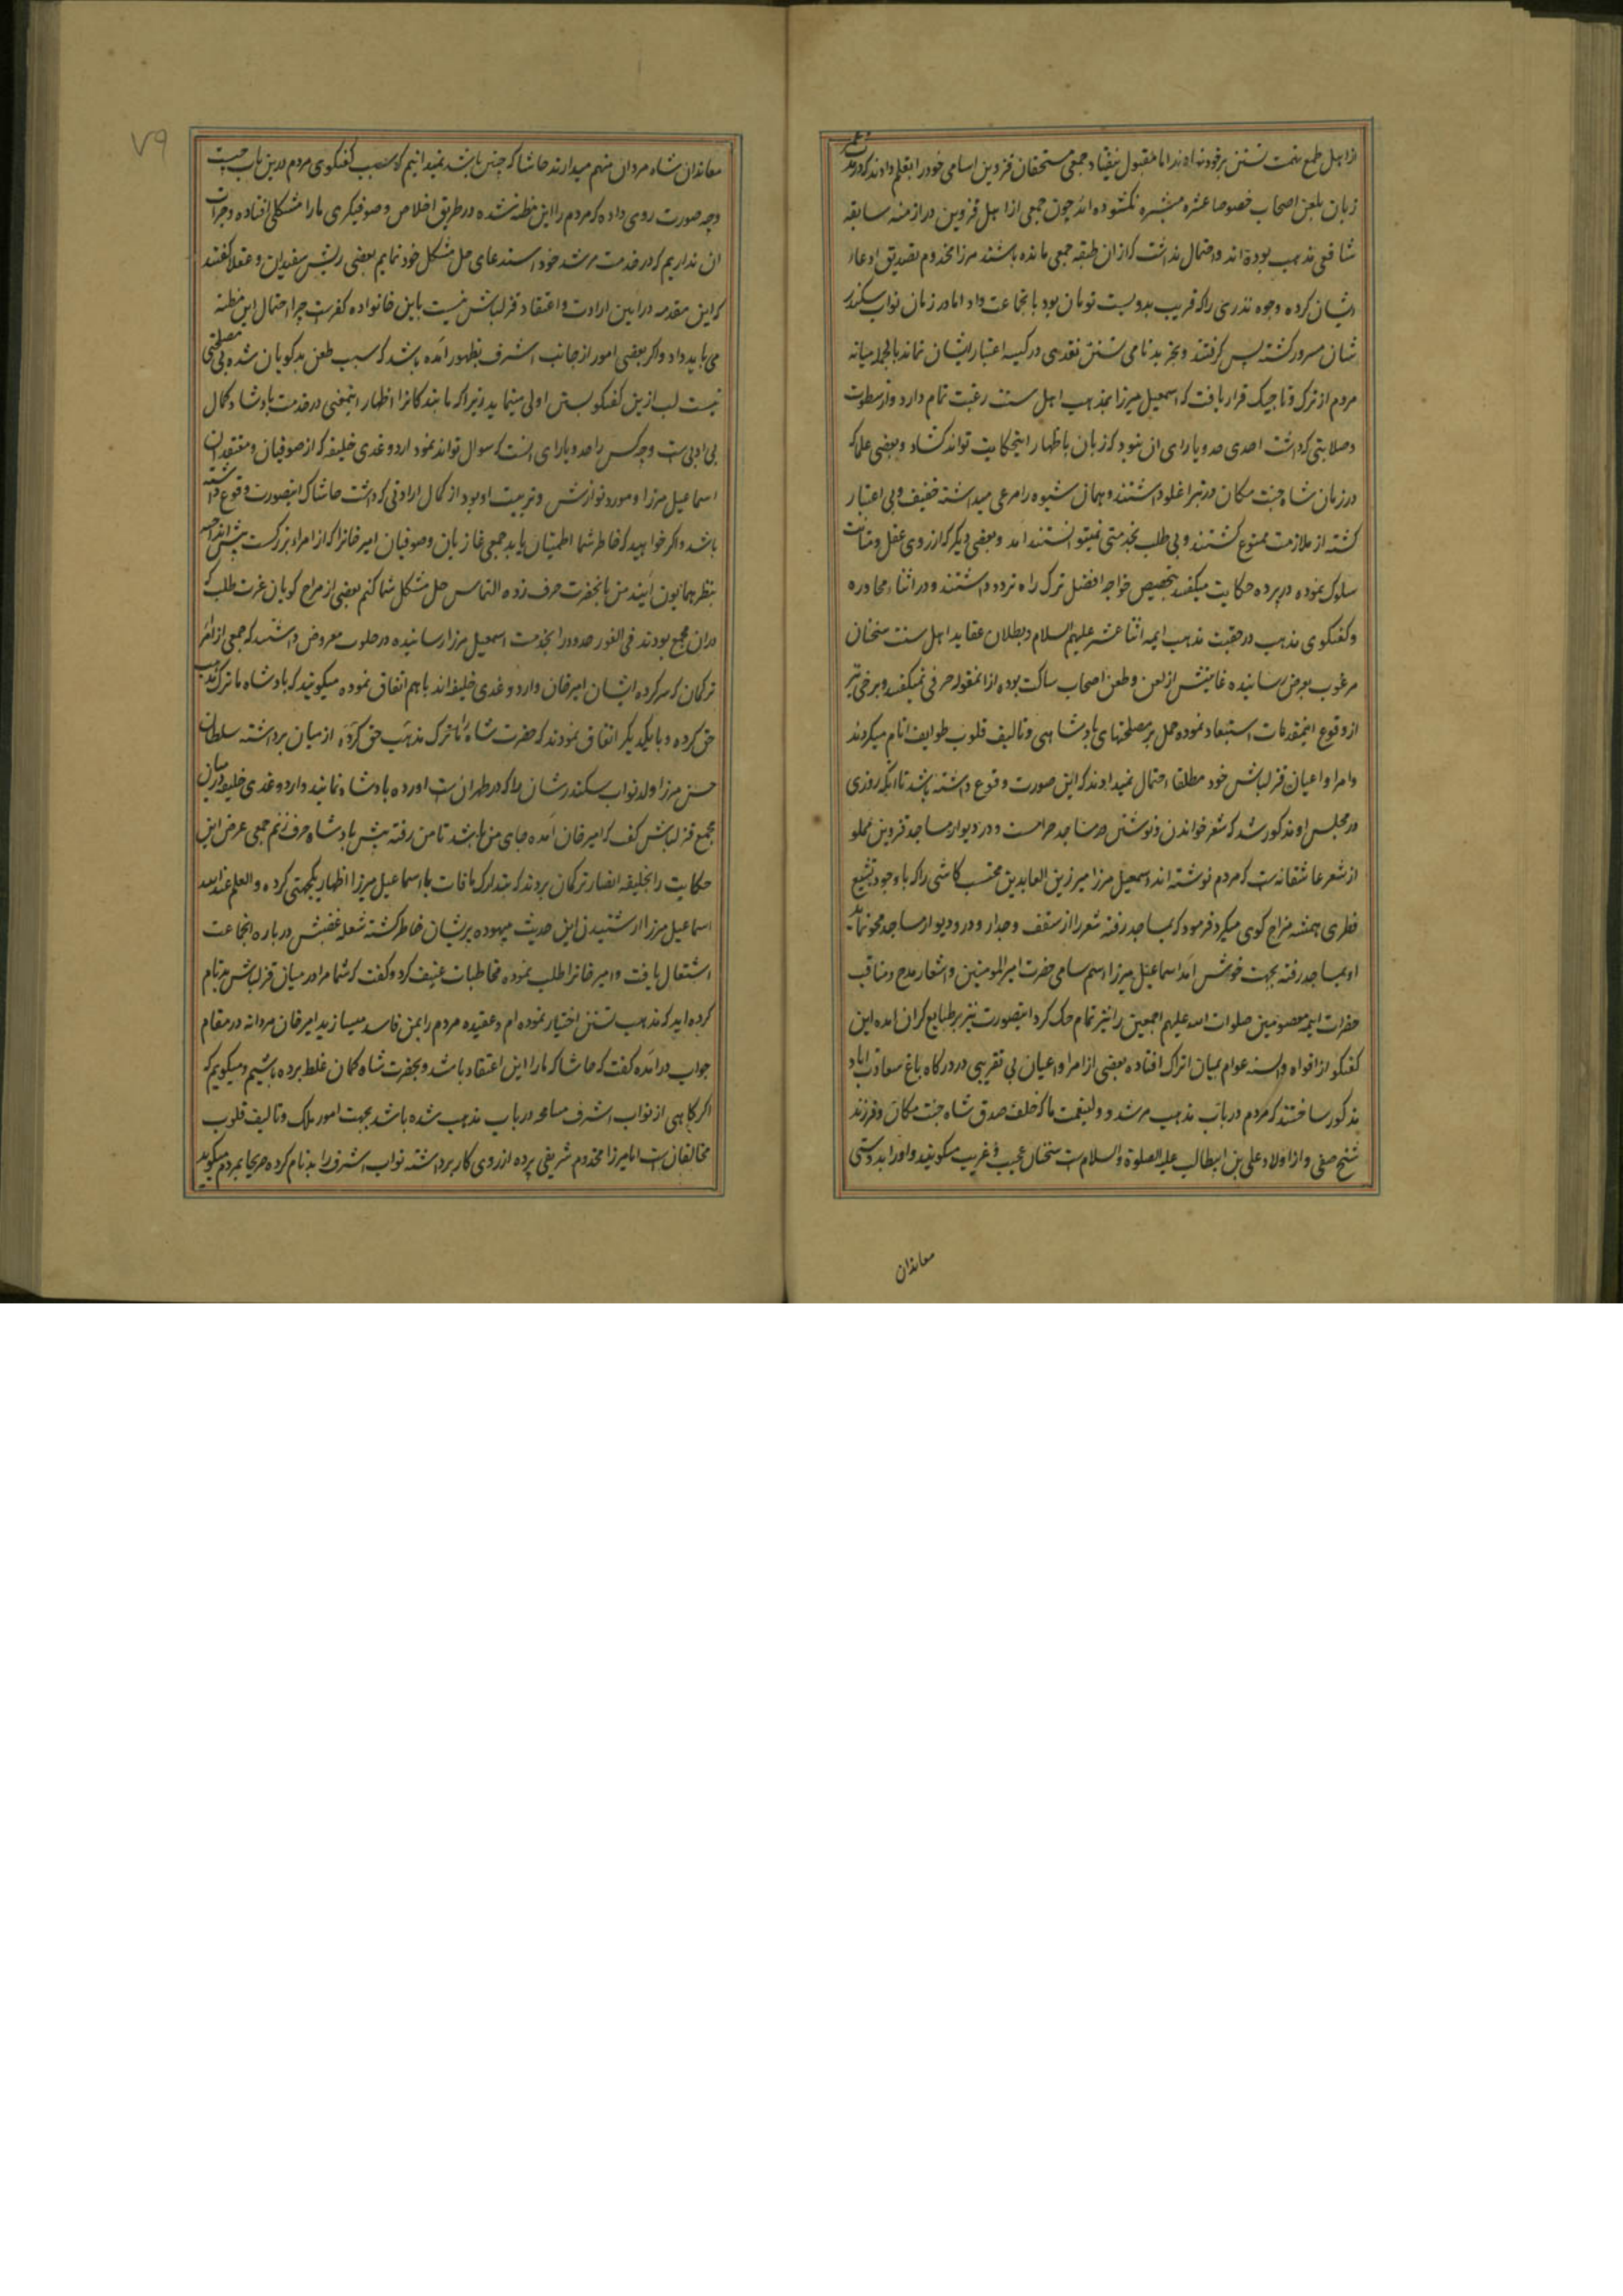 از اهل طمع تهمت تسنن بر خود نهادند اما مقبول نیفتاد جمعی مستحقان قزوین اسامی خود را بقلم دادند که در مدت عمر
زبان بلعن اصحاب خصوصا عشره مبشره نکشوده اند چون جمعی از اهل قزوین در ازمنه سابقه
شافعی مذهب بوده اند و احتمال نداشت که از ان طبقه جمعی مانده باشند مرزا مخدوم تصدیق ادعاء
ایشان کرده وجوه نذری را که قریب بدویست تومان بود بانجماعت داد اما در زمان نواب سکندر
شان مسرور کشته پس کرفتند و بجز بدنامی تسنن نقدی در کیسه اعتبار ایشان نماند بالجمله میانه
مردم از ترک و تاجیک قرار یافت که اسمعیل میرزا بمذهب اهل سنت رغبت تمام دارد و از سطوت
و صلابتی که داشت احدی حد و یارای ان نبود که زبان باظهار اینحکایت تواند کشاد و بعضی علما که
در زمان شاه جنت مکان در تبرا غلو داشتند و همان شیوه را مرعی میداشته خفیف و بی اعتبار
کشته از ملازمت ممنوع کشتند و بی طلب بخدمتی نمیتوانستند امد و بعضی دیکر که از روی عقل و متانت
سلوک نموده در پرده حکایت میکفتند بتخصیص خواجه افضل ترک راه تردد داشتند و در اثناء محاوره
و کفتکوی مذهب در حقیت مذهب ایمه اثنا عشر علیهم السلام و بطلان عقاید اهل سنت سخنان
مرغوب بعرض رسانیده غایتش از لعن و طعن اصحاب ساکت بوده از انمقوله حرفی نمیکفتند و برخی نیز
از وقوع اینمقدمات استبعاد نموده حمل بر مصلحتهای پادشاهی و تالیف قلوب طوایف انام میکردند
و امرا و اعیان قزلباش خود مطلقا احتمال نمیدادند که این صورت وقوع داشته باشد تا انکه روزی
در مجلس او مذکور شد که شعر خواندن و نوشتن در مساجد حرامست و در دیوار مساجد قزوین مملو
از شعر عاشقانه است که مردم نوشته اند اسمعیل مرزا میر زین العابدین محتسب کاشی را که با وجود تشیع
فطری همیشه مزاج کوی میکرد فرمود که بمساجد رفته شعر را از سقف و جدار و در و دیوار مساجد محو نماید
او بمساجد رفته بجهت خوش امد اسماعیل میرزا اسم سامی حضرت امیر المومنین و اشعار مدح و مناقب
حضرات ایمه معصومین صلوات الله علیهم اجمعین را نیز تمام حک کرد اینصورت نیز بر طبایع کران امده این
کفتکو از افواه و السنه عوام بمیان اتراک افتاده بعضی از امرا و اعیان بی تقریبی در درکاه باغ سعادت اباد
مذکور ساختند که مردم در باب مذهب مرشد و ولینعمت ما که خلف صدق شاه جنت مکان و فرزند
شیخ صفی و از اولاد علی بن ابیطالب علیه الصلوة و السلام است سخنان عجیب و غریب میکویند و او را بدوستی
معاندان
۷۹
معاندان شاه مردان متهم میدارند حاشا که چنین باشد نمیدانیم که سبب کفتکوی مردم درین باب چیست
و چه صورت روی داده که مردم را این مظنه شده در طریق اخلاص و صوفیکری ما را مشکلی افتاده و جرات
ان نداریم که در خدمت مرشد خود استدعای حل مشکل خود نمایم بعضی ریش سفیدان و عقلا کفتند
که این مقدمه در این ارادت و اعتقاد قزلباش نیست باین خانواده کفر است چرا احتمال این مظنه
می باید داد و اکر بعضی امور از جانب اشرف بظهور امده باشد که سبب طعن بدکویان شده بی مصلحتی
نیست لب ازین کفتکو بستن اولی مینماید زیرا که ما بندکانرا اظهار اینمعنی در خدمت پادشاه کمال
بی ادبی است و چه کس را حد و یارای انست که سوال تواند نمود اردوغدی خلیفه که از صوفیان و معتقدان
اسماعیل مرزا و مورد نوازش و تربیت او بود از کمال ارادتی که داشت حاشا که اینصورت وقوع داشته
باشد و اکر خواهید که خاطر شما اطمینان یابد جمعی غازیان و صوفیان امیر خانرا که از امراء بزرکست پیش انداخته
بنظر همایون آیند من بانحضرت حرف زده التماس حل مشکل شما کنم بعضی از مزاج کویان عزت طلب که
در ان مجمع بودند فی الفور خود را بخدمت اسمعیل مرزا رسانیده در خلوت معروض داشتند که جمعی از امراء
ترکمان که سرکرده ایشان امیر خان و اردوغدی خلیفه اند با هم اتفاق نموده میکویند که پادشاه ما ترک مذهب
حق کرده و با یکدیکر اتفاق نمودند که حضرت شاه را تا ترک مذهب حق کرده از میان برداشته سلطان
حسن مرزا ولد نواب سکندر شان را که در طهران است اورده پادشاه نمایند و اردوغدی خلیفه در میان
مجمع قزلباش کفت که امیر خان امده جای من باشد تا من رفته پیش پادشاه حرف زنم جمعی عرض این
حکایت را بخلیفه انصار ترکمان بردند که بتدارک مافات با اسماعیل میرزا اظهار یکجهتی کرده و العلم عند الله
اسماعیل مرزا از شنیدن این حدیث بیهوده پریشان خاطر کشته شعله غضبش در باره انجماعت
اشتعال یافت و امیر خانرا طلب نموده مخاطبات عنیف کرد و کفت که شما مرا در میان قزلباش بدنام
کرده اید که مذهب تسنن اختیار نموده ام و عقیده مردم را بمن فاسد میسازید امیر خان مردانه در مقام
جواب درامده کفت که حاشا که ما را این اعتقاد باشد و بحضرت شاه کمان غلط برده باشیم و میکویم که
اکر کاهی از نواب اشرف مسامحه در باب مذهب شده باشد بجهت امور ملک و تالیف قلوب
مخالفان است اما میرزا مخدوم شریفی پرده از روی کار برداشته نواب اشرف را بدنام کرده صریحا بمردم میکوید